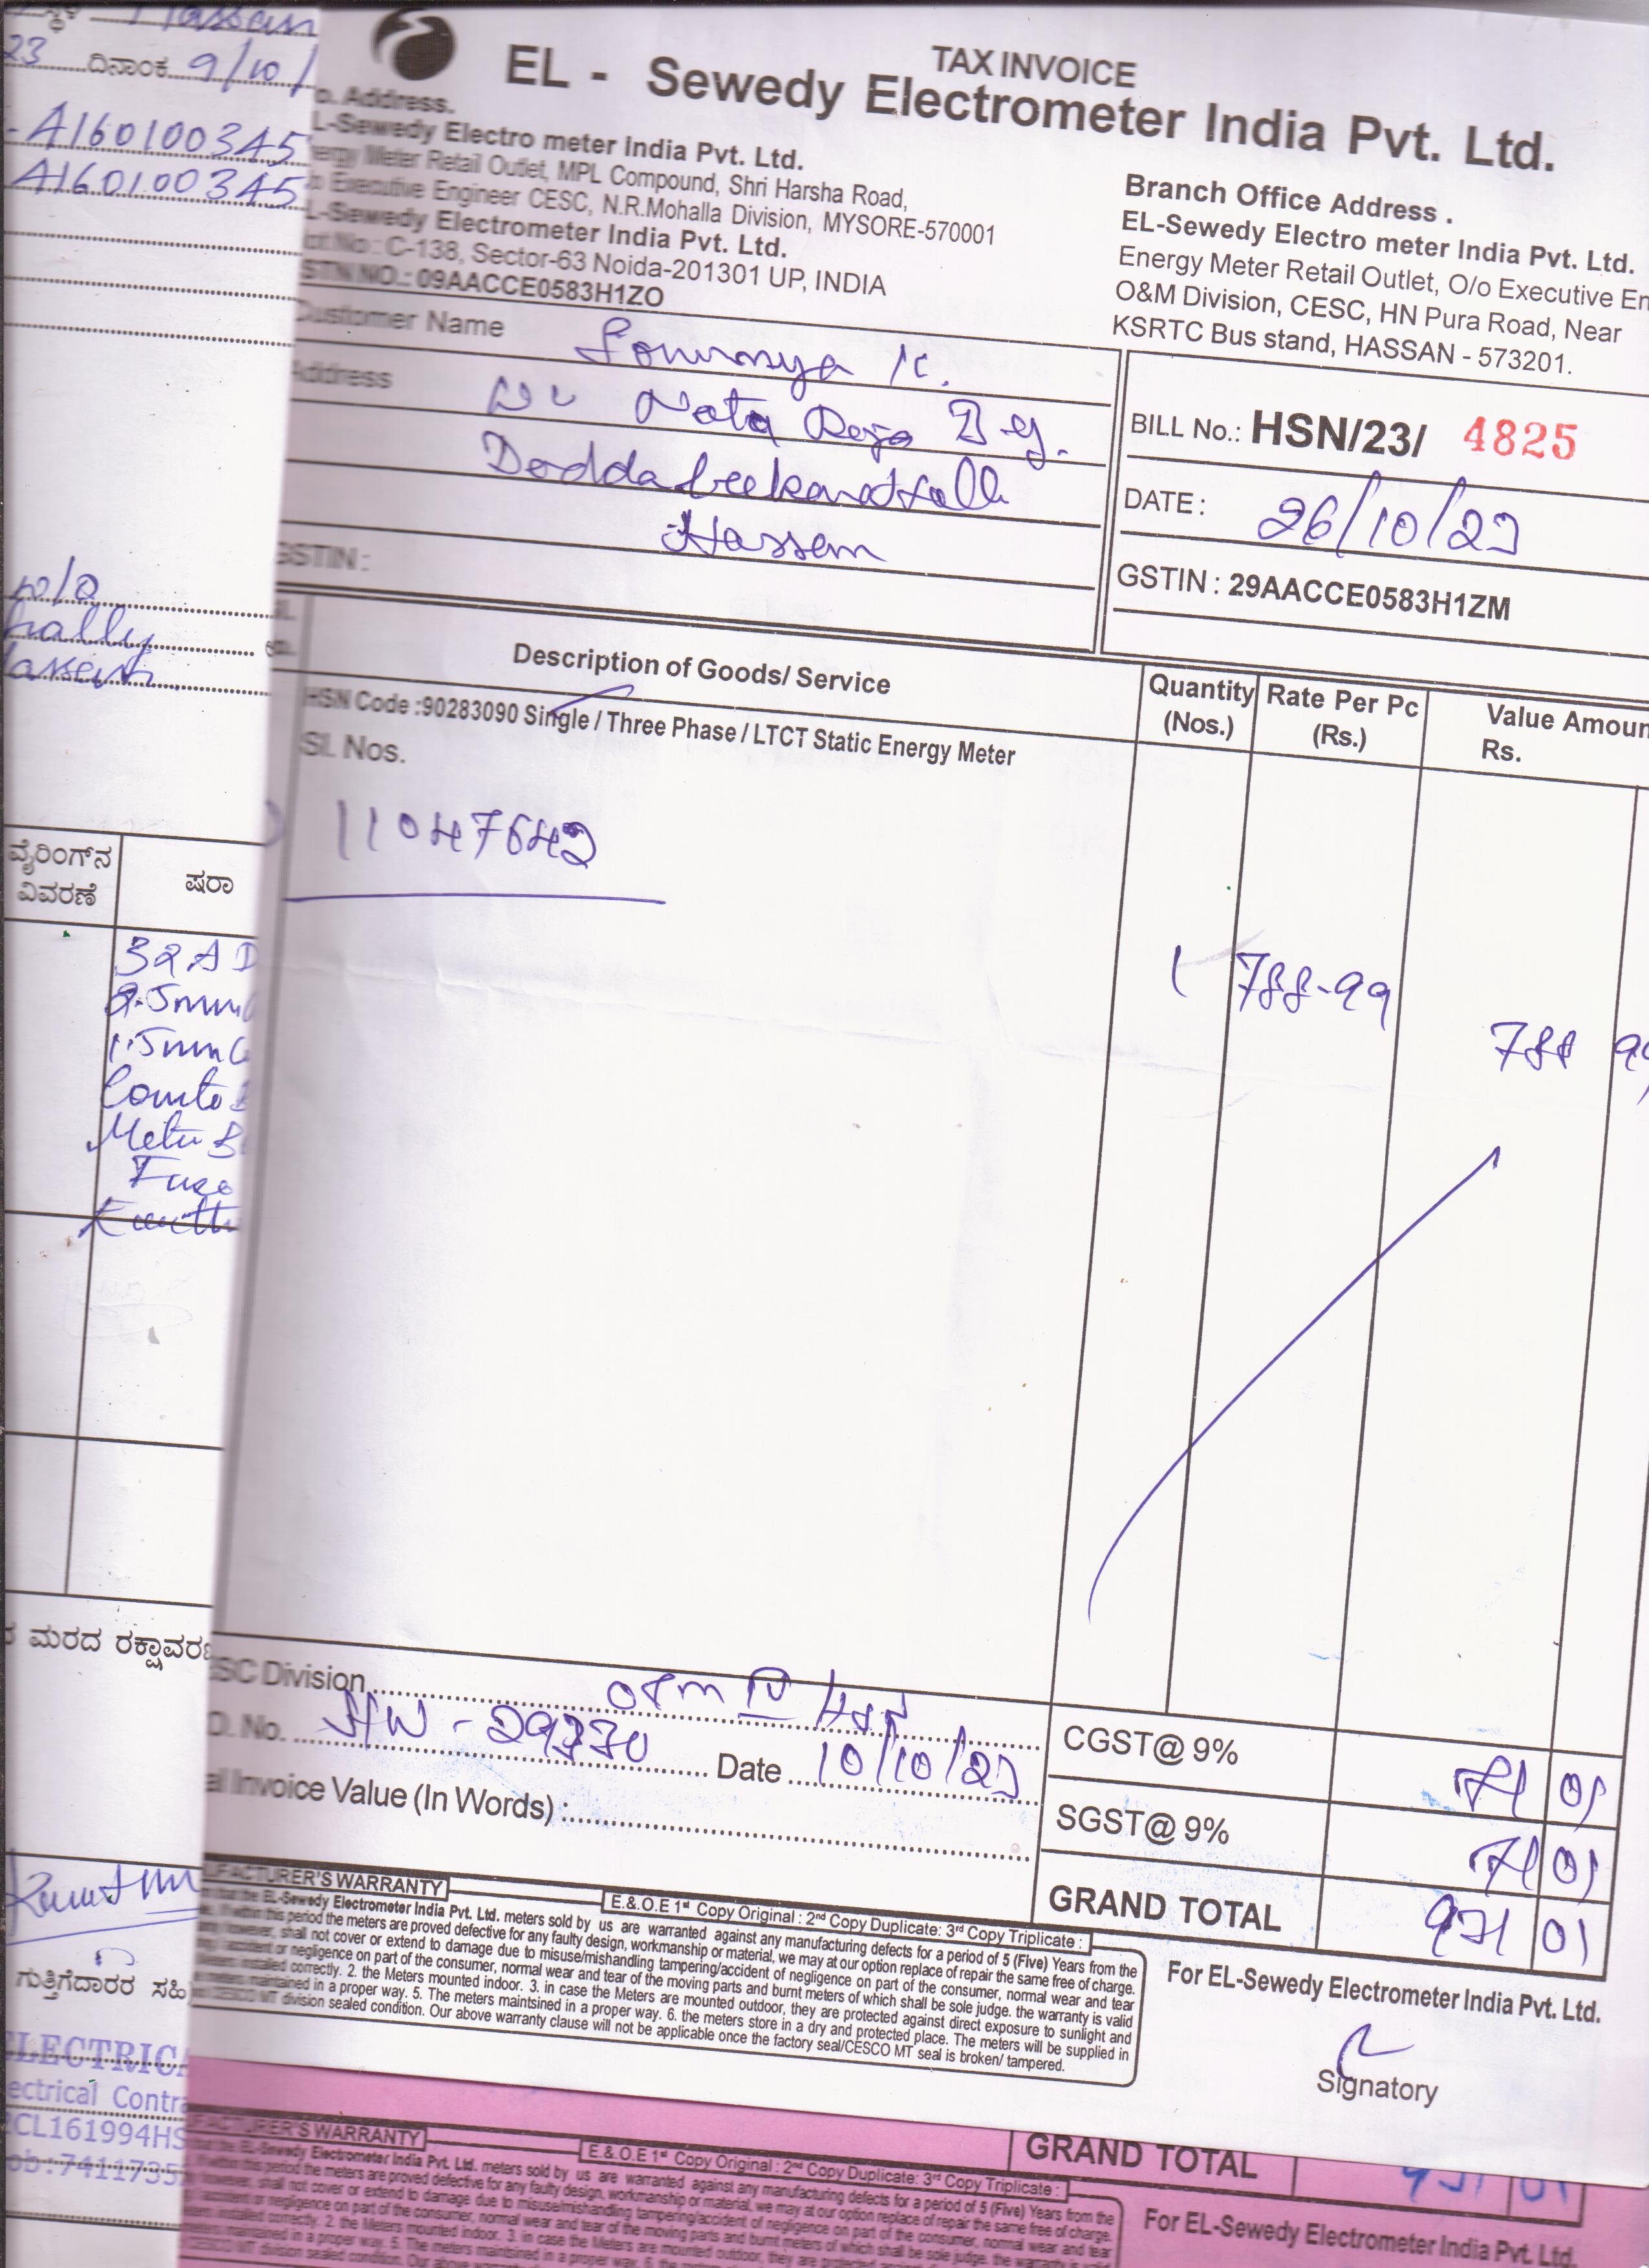 Hassan
23 ದಿನಾಂಕ 9/10/
-A160100345
A160100345
w/o
hally
ವೈರಿಂಗ್‌ನ
ವಿವರಣೆ
ಷರಾ
32 A D
2.5mm
1.5mm C
Meter B
Fuse
ಮರದ ರಕ್ಷಾವರಣ
ಗುತ್ತಿಗೆದಾರರ ಸಹಿ
LECTRICA
ectrical Contra
CL161994HS
ob:7411735
TAX INVOICE
EL - Sewedy Electrometer India Pvt. Ltd.
o. Address.
L-Sewedy Electro meter India Pvt. Ltd.
ergy Meter Retail Outlet, MPL Compound, Shri Harsha Road,
o Executive Engineer CESC, N.R.Mohalla Division, MYSORE-570001
L-Sewedy Electrometer India Pvt. Ltd.
lot No : C-138, Sector-63 Noida-201301 UP, INDIA
STN NO.: 09AACCE0583H1ZO
Branch Office Address .
EL-Sewedy Electro meter India Pvt. Ltd.
Energy Meter Retail Outlet, O/o Executive En
O&M Division, CESC, HN Pura Road, Near
KSRTC Bus stand, HASSAN - 573201.
Customer Name Sowmya K.
Address Nata Raja B.g.
Hassan
GSTIN :
BILL No.: HSN/23/ 4825
DATE : 26/10/23
GSTIN : 29AACCE0583H1ZM
SL.
Description of Goods/ Service
Quantity (Nos.)
Rate Per Pc (Rs.)
Value Amoun Rs.
HSN Code :90283090 Single / Three Phase / LTCT Static Energy Meter
Sl. Nos.
11047642
1 788-99
788 99
SC Division O&M IV HSN
O. No. HW - 29770 Date 10/10/23
al Invoice Value (In Words) :
CGST@ 9% 71 01
SGST@ 9% 71 01
GRAND TOTAL 931 01
UFACTURER'S WARRANTY
E.&.O.E 1st Copy Original : 2nd Copy Duplicate: 3rd Copy Triplicate :
that the EL-Sewedy Electrometer India Pvt. Ltd. meters sold by us are warranted against any manufacturing defects for a period of 5 (Five) Years from the
If within this period the meters are proved defective for any faulty design, workmanship or material, we may at our option replace of repair the same free of charge.
however, shall not cover or extend to damage due to misuse/mishandling tampering/accident of negligence on part of the consumer, normal wear and tear
accident or negligence on part of the consumer, normal wear and tear of the moving parts and burnt meters of which shall be sole judge. the warranty is valid
installed correctly. 2. the Meters mounted indoor. 3. in case the Meters are mounted outdoor, they are protected against direct exposure to sunlight and
meters maintained in a proper way. 5. The meters maintsined in a proper way. 6. the meters store in a dry and protected place. The meters will be supplied in
CESCO MT division sealed condition. Our above warranty clause will not be applicable once the factory seal/CESCO MT seal is broken/ tampered.
For EL-Sewedy Electrometer India Pvt. Ltd.
Signatory
FACTURER'S WARRANTY
E.&.O.E 1st Copy Original : 2nd Copy Duplicate: 3rd Copy Triplicate :
GRAND TOTAL 931 01
that the EL-Sewedy Electrometer India Pvt. Ltd. meters sold by us are warranted against any manufacturing defects for a period of 5 (Five) Years from the
For EL-Sewedy Electrometer India Pvt. Ltd.